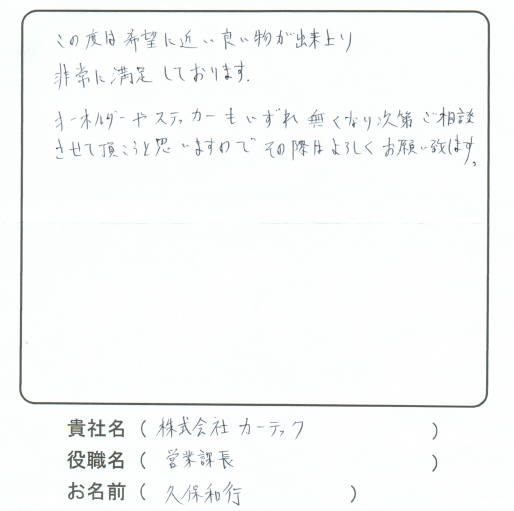 この度は希望に近い良い物が出来上り
非常に満足しております。
キーホルダーやステッカーもいずれ無くなり次第ご相談
させて頂こうと思いますので その際はよろしくお願い致します。
貴社名 ( 株式会社 カーテック )
役職名 ( 営業課長 )
お名前 ( 久保和行 )